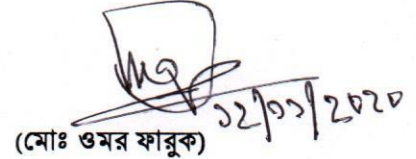 ১২/১১/২০২০
(মোঃ ওমর ফারুক)